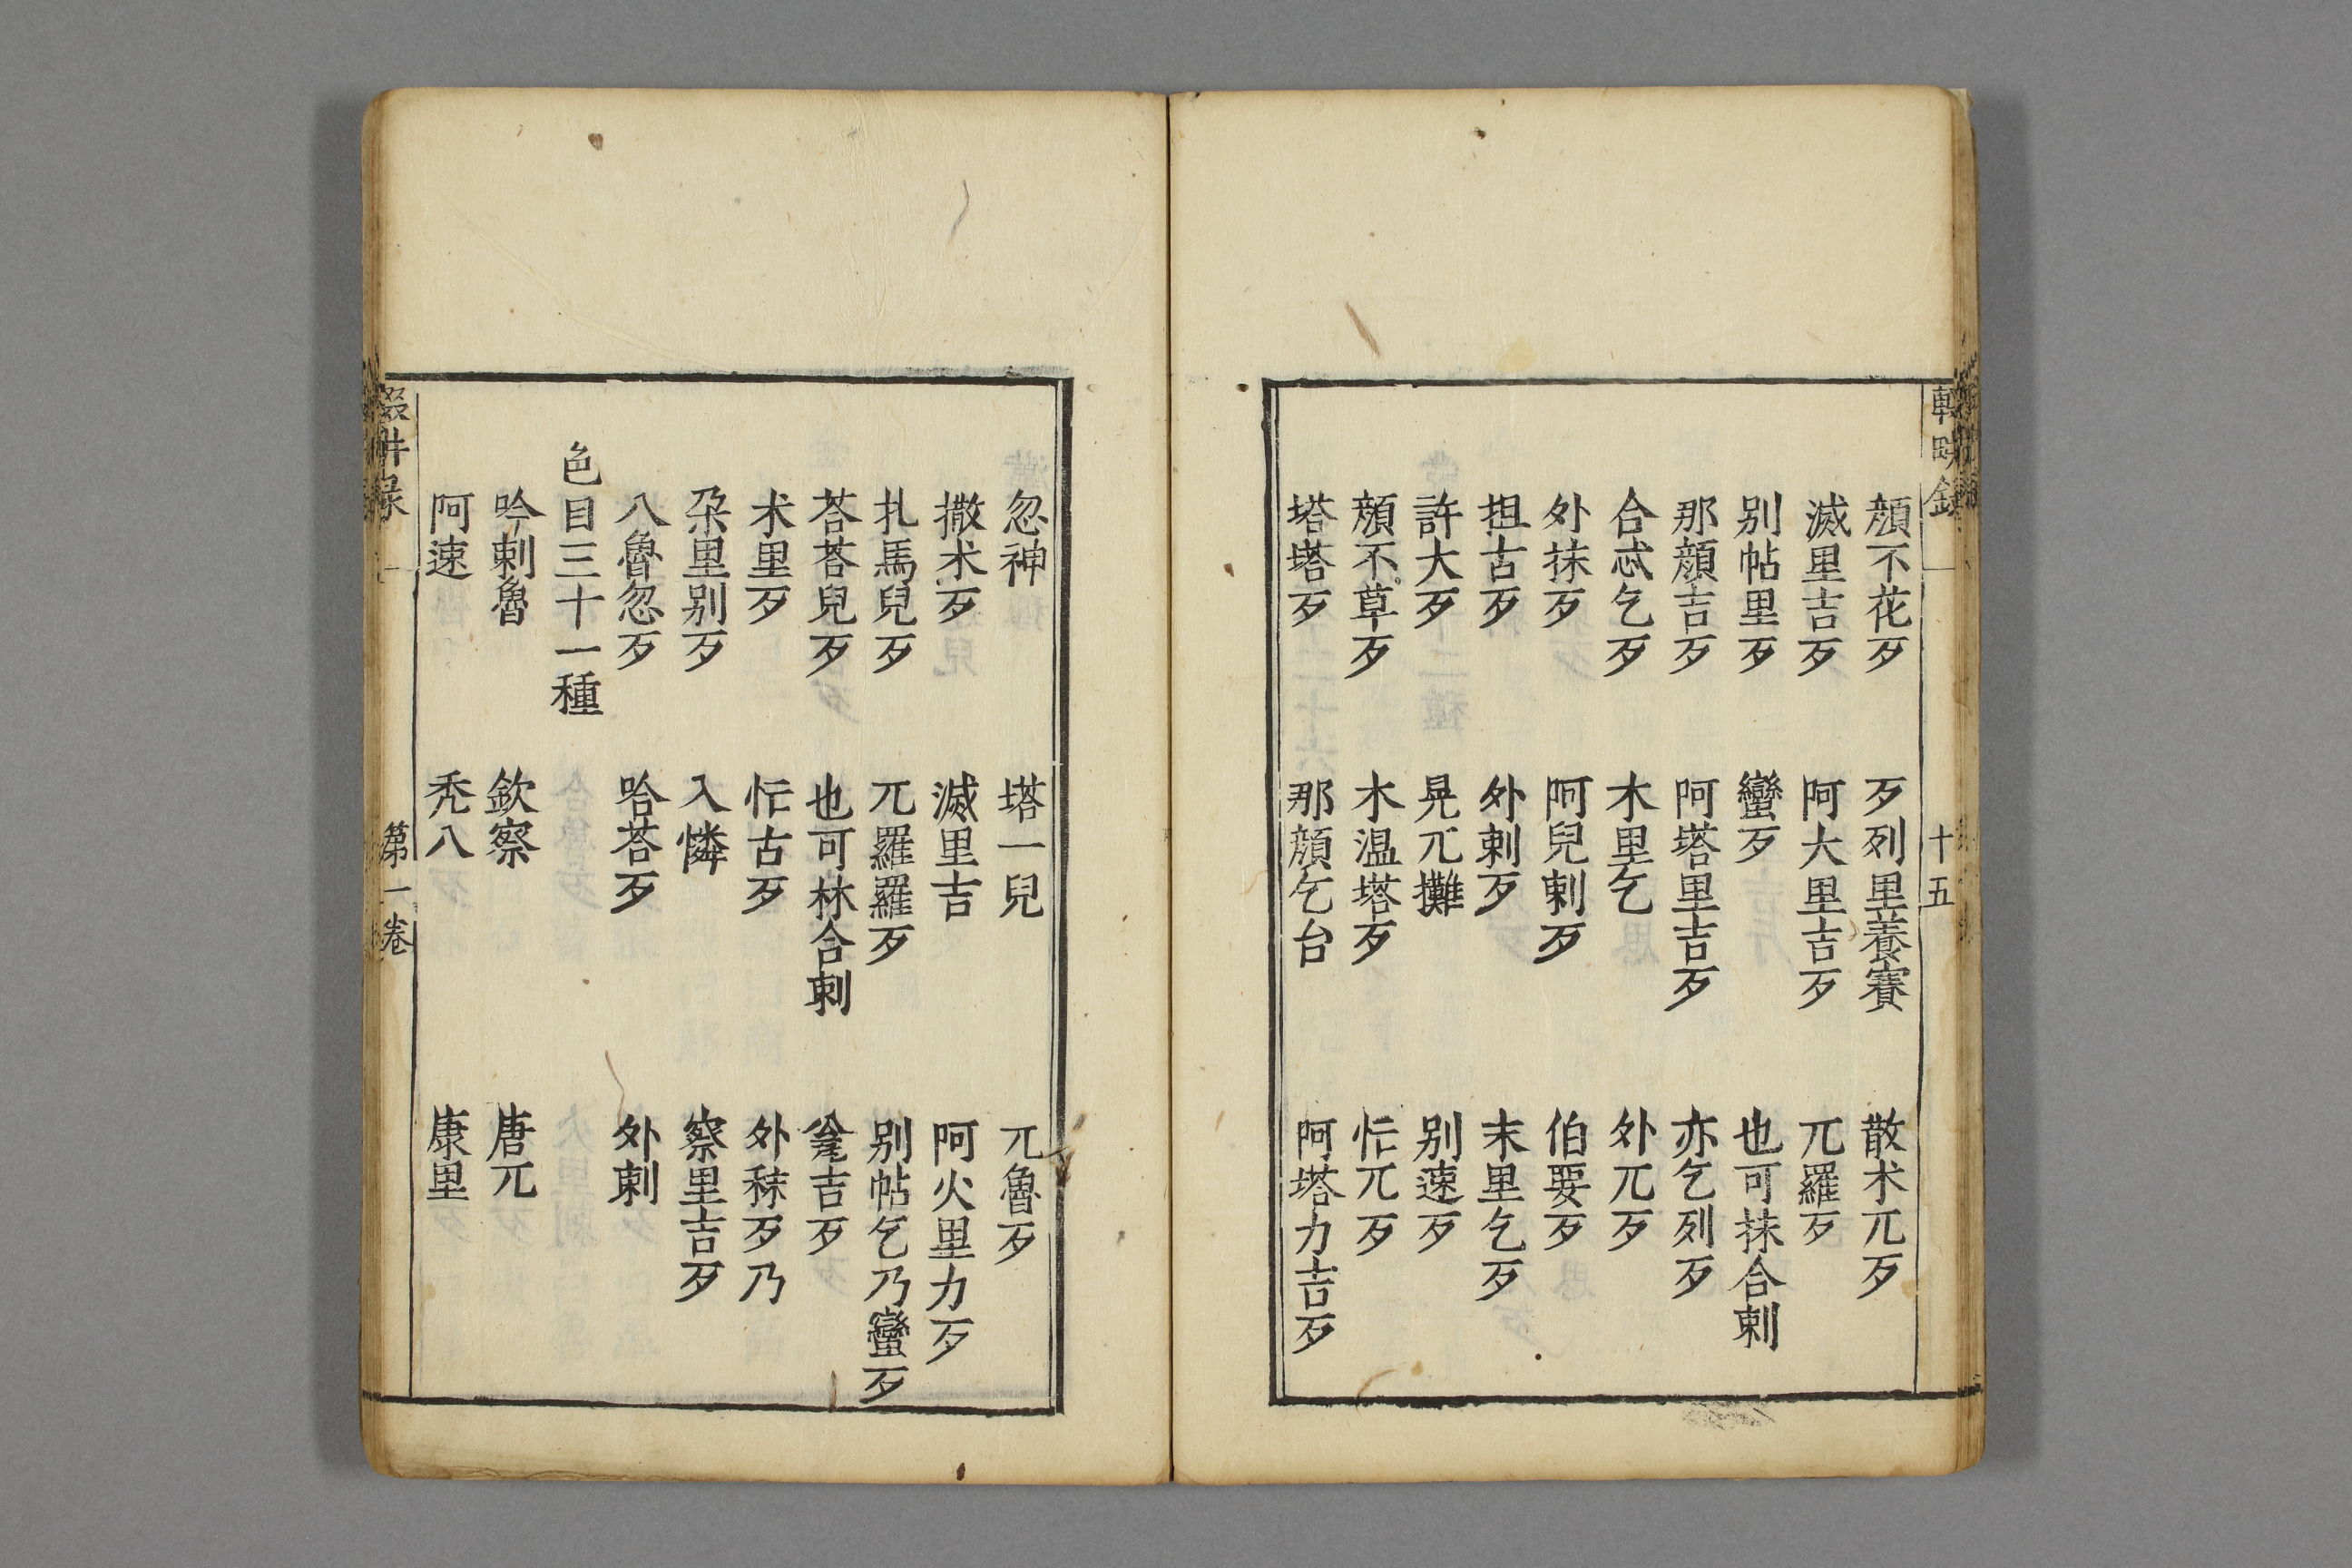 輟畊錄
十五
顏不花歹 歹列里養賽 散朮兀歹
滅里吉歹 阿大里吉歹 兀羅歹
别帖里歹 蠻歹 也可抹合剌
那顏吉歹 阿塔里吉歹 亦乞列歹
合忒乞歹 木里乞 外兀歹
外抹歹 阿兒剌歹 伯要歹
担古歹 外剌歹 末里乞歹
許大歹 晃兀攤 别速歹
顏不草歹 木温塔歹 忙兀歹
塔塔歹 那顏乞台 阿塔力吉歹
忽神 塔一兒 兀魯歹
撒朮歹 滅里吉 阿火里力歹
扎馬兒歹 兀羅羅歹 别帖乞乃蠻歹
荅荅兒歹 也可林合剌 瓮吉歹
朮里歹 忙古歹 外秣歹乃
朶里别歹 入憐 察里吉歹
八魯忽歹 哈荅歹 外剌
色目三十一種
吟剌魯 欽察 唐兀
阿速 禿八 康里
輟畊錄
第一卷